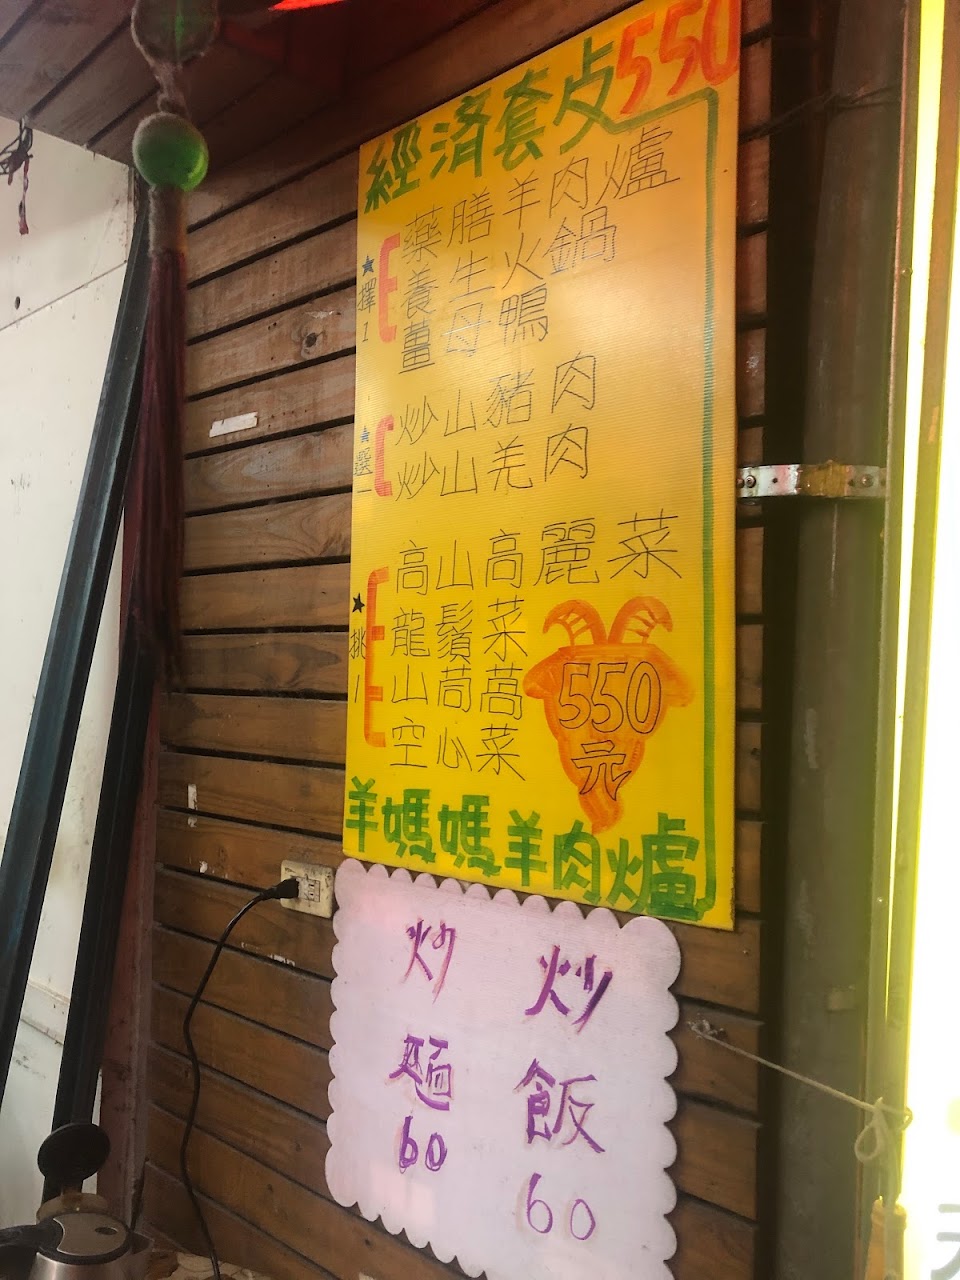 經濟套歺550
藥膳羊肉爐
養生火鍋
薑母鴨
★擇1
炒山豬肉
炒山羌肉
★選一
高山高麗菜
龍鬚菜
山茼蒿
空心菜
★挑1
550
元
羊媽媽羊肉爐
炒麵60
炒飯60